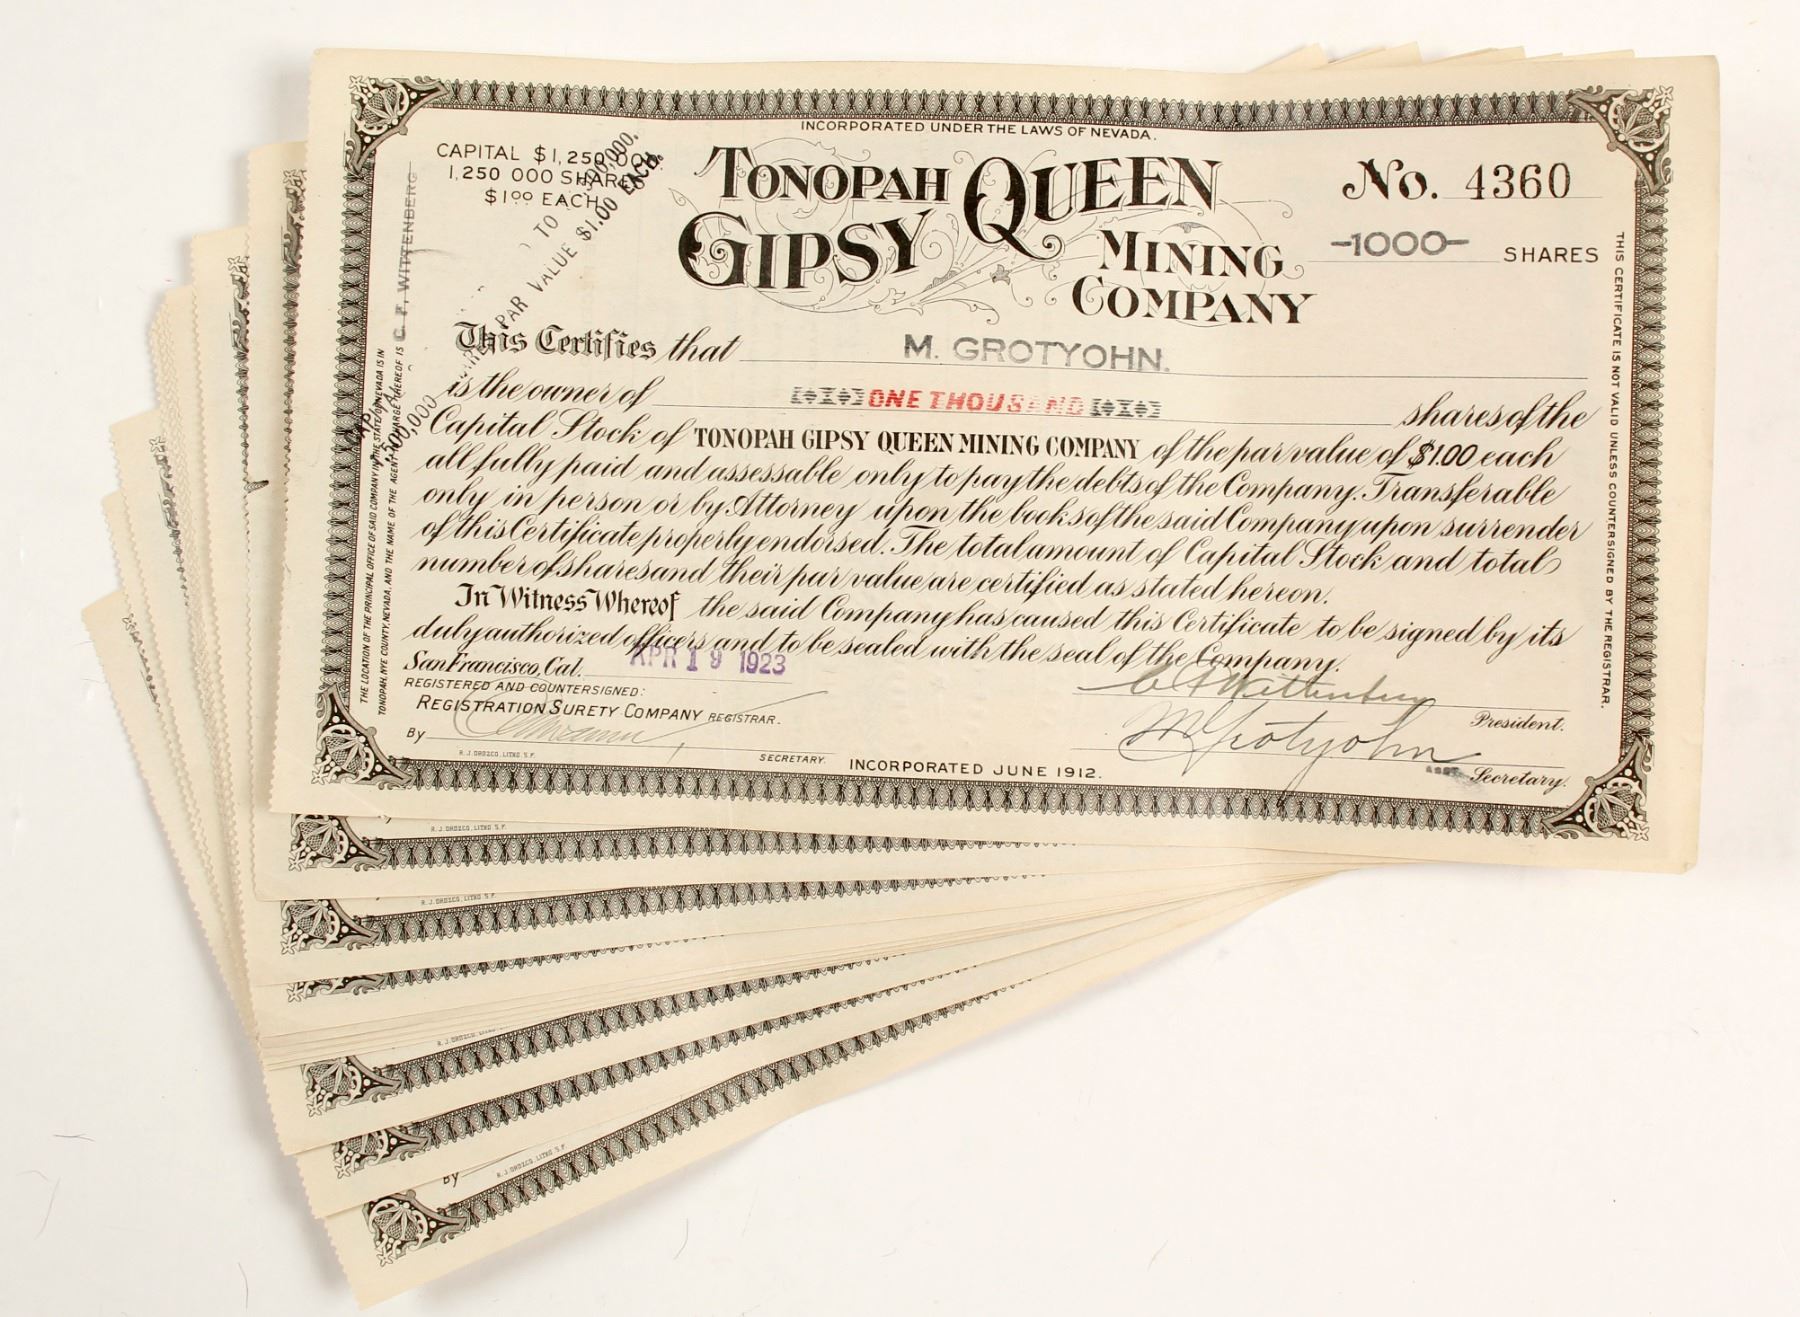 INCORPORATED UNDER THE LAWS OF NEVADA.
CAPITAL $1,250,000
1,250 000 SHARES
$1.00 EACH
TONOPAH
GIPSY QUEEN
MINING
COMPANY
No. 4360
-1000- SHARES
This Certifies that M. GROTYOHN.
is the owner of ONE THOUSAND shares of the
Capital Stock of TONOPAH GIPSY QUEEN MINING COMPANY of the par value of $1.00 each
all fully paid and assessable only to pay the debts of the Company. Transferable
only in person or by Attorney upon the books of the said Company upon surrender
of this Certificate properly endorsed. The total amount of Capital Stock and total
number of shares and their par value are certified as stated hereon.
In Witness Whereof the said Company has caused this Certificate to be signed by its
duly authorized officers and to be sealed with the seal of the Company.
San Francisco, Cal. APR 19 1923
REGISTERED AND COUNTERSIGNED:
REGISTRATION SURETY COMPANY REGISTRAR.
By
SECRETARY.
R. J. OROZCO, LITHO S.F.
INCORPORATED JUNE 1912.
C F Wittenberg
President.
M Grotyohn
ASST. Secretary.
THE LOCATION OF THE PRINCIPAL OFFICE OF SAID COMPANY IN THE STATE OF NEVADA IS IN
TONOPAH, NYE COUNTY, NEVADA, AND THE NAME OF THE AGENT IN CHARGE THEREOF IS C. F. WITTENBERG
TO
PAR VALUE $1.00 EACH.
THIS CERTIFICATE IS NOT VALID UNLESS COUNTERSIGNED BY THE REGISTRAR.
R. J. OROZCO, LITHO S.F.
R. J. OROZCO, LITHO S.F.
R. J. OROZCO, LITHO
By
R. J. OROZCO, LITHO S.F.